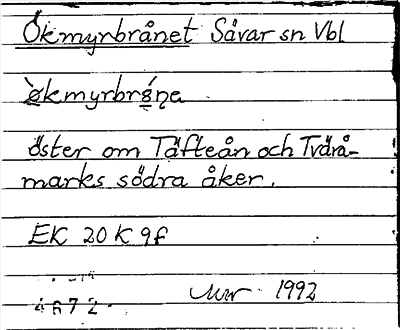 Ökmyrbrånet Sävar sn Vbl
ø̀kmyrbrǻn̥a
öster om Täfteån och Tvärå-
marks södra åker.
EK 20 K 9f
1992
4672